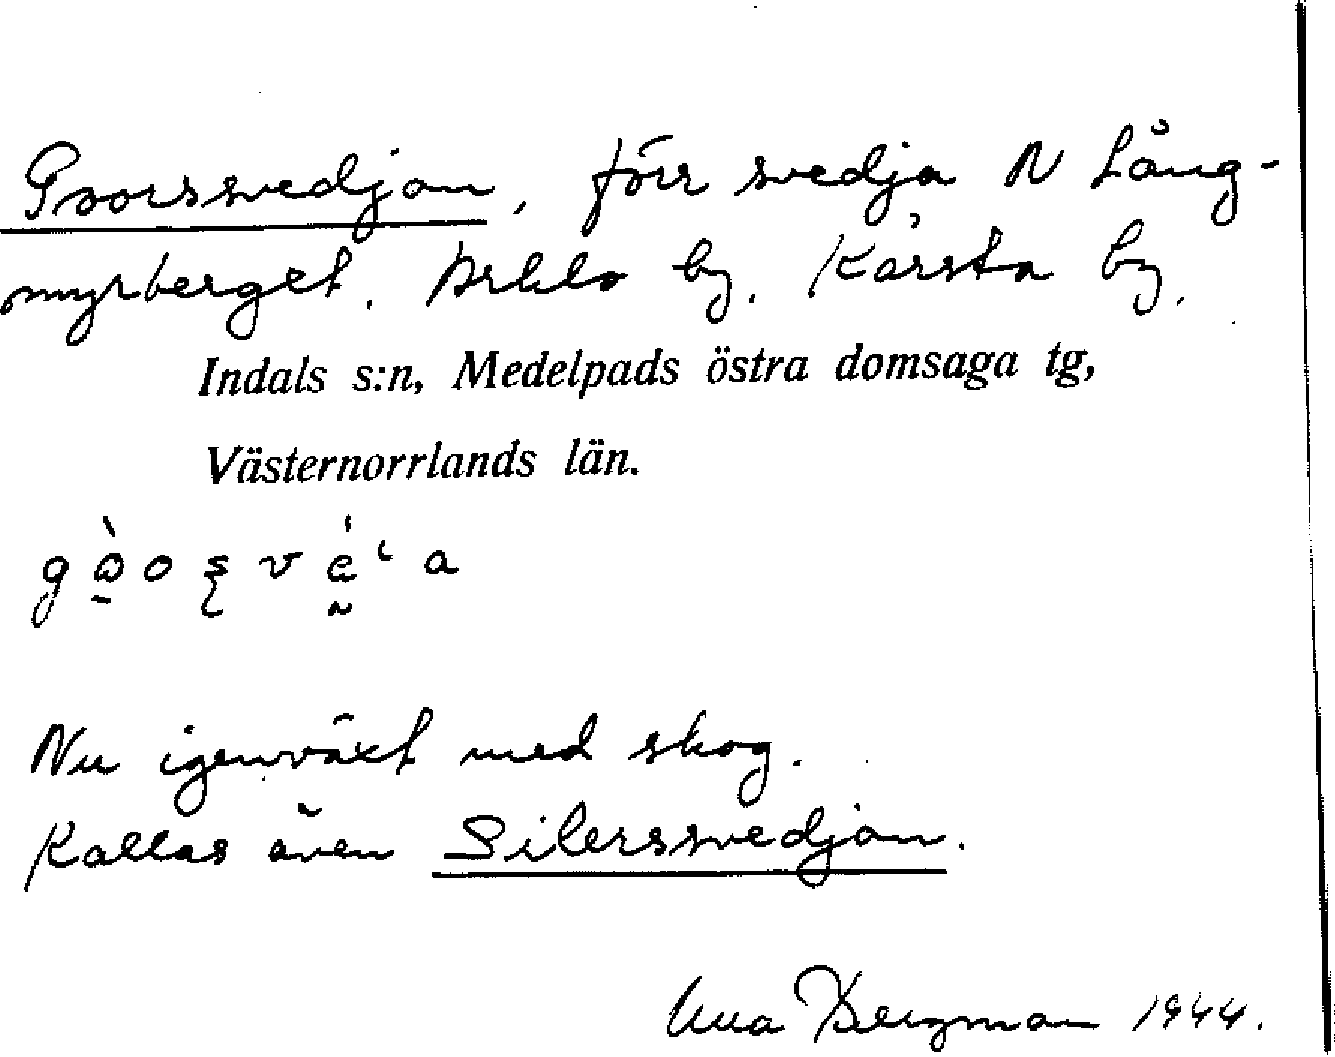 Goorssvedjan, förr svedja N Lång-
myrberget. by. Kärsta by.
Indals s:n, Medelpads östra domsaga tg,
Västernorrlands län.
Nu igenväxt med skog.
Kallas även Silerssvedjan.
Bergman 1944.